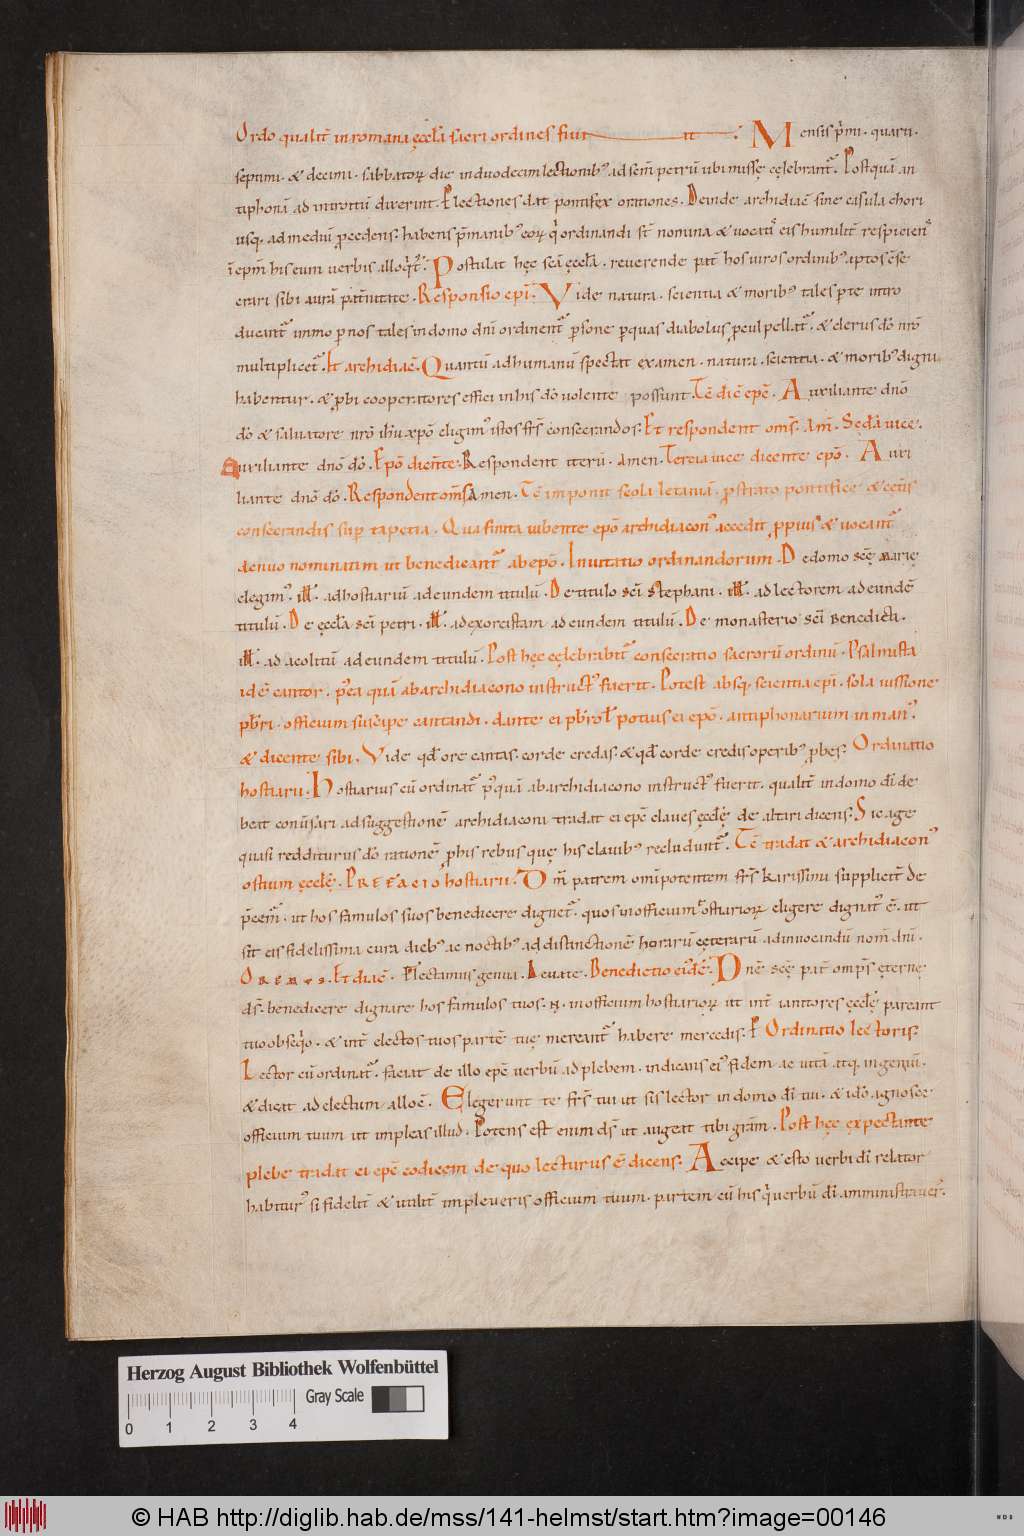 Ordo qualit̄ in romana ęccl̄a sacri ordines fiunt. Mensis p̄mi. quarti.
septimi. & decimi. sabbatorꝝ die in duodecim lectionib; ad sc̄m petrū ubi missę cęlebrant᷑. Postquā an
tiphonā ad introitū dixerint. Flectiones dat pontifex orationes. Deinde archidiac̄ sine casula chori
usq; ad mediū procedens. habens p̄ manib; eoꝝ q̇ ordinandi st̄ nomina & uocati᷑ eis humilit̄ respicien᷑
ī ep̄m his eum uerbis alloq̇t᷑. Postulat hęc sc̄a ęccl̄a. reuerende pat̄ hos uiros ordinib; aptos c̄se
crari sibi aur̄a pat̄nitate. Responsio ep̄i. Vide natura. scientia & morib; tales p te intro
ducant᷑ immo p nos tales in domo dn̄i ordinent᷑ p̄sone p quas diabolus pcul pellat᷑. & clerus dō nr̄o
multiplicet᷑. Et archidiac̄. Quantū ad humanū spectat examen. natura. scientia. & morib; digni
habentur. & pbi cooperatores effici in his dō uolente possunt. Tc̄ dic̄ epc̄. Auxiliante dnō
dō & saluatore nr̄o ih̄u xp̄o eligim; istos fr̄s consecrandos. Et respondent om̄s. Am̄. Sęd̄a uice.
Auxiliante dnō dō. Ep̄o dicn̄te. Respondent iterū. Amen. Tercia uice dicente ep̄o. Auxi
liante dnō dō. Respondent om̄s Amen. Tc̄ imponit scola letaniā. prostrato pontifice & cęt̄is
consecrandis sup tapetia. Qua finita iubente ep̄o archidiacon; accedit ppius & uocant᷑
denuo nominatim ut benedicant᷑ ab ep̄o. Inuitatio ordinandorum. De domo sc̄ę Marię
elegim;. ill̄. ad hostiariū ad eundem titulū. De titulo sc̄i Stephani. ill̄. ad lectorem ad eundē
titulū. De ęccl̄a sc̄i petri. ill̄. ad exorcistam ad eundem titulū. De monasterio sc̄i Benedicti.
ill̄. ad acolitū ad eundem titulū. Post hęc cęlebrabit᷑ consecratio sacrorū ordinū. Psalmista
idē cantor. p̄ea quā ab archidiacono instruct; fuerit. Potest absq; scientia ep̄i. sola iussione
pbr̄i. officium suscipe cantandi. dante ei pbr̄o ł potius ei ep̄o. antiphonarium in man;.
& dicente sibi. Vide qd̄ ore cantas. corde credas. & qd̄ corde credis operib; pbes. Ordinatio
hostiarii. Hostiarius cū ordinat᷑ p̄quā ab archidiacono instruct; fuerit. qualit̄ in domo dī de
beat conūsari ad suggestionē archidiaconi tradat ei epc̄ claues ęccl̄ę de altari dicens. Sic age
quasi redditurus dō rationē p his rebus quę his clauib; recludunt᷑. Tc̄ tradat & archidiacon;
ostium ęccl̄ę. PREFACIO hostiarii. Dm̄ patrem omīpotentem fr̄s karissimi supplicit̄ de
p̄cem᷑. ut hos famulos suos benedicere dignet᷑. quos in officium ostiarioꝝ eligere dignat; ē. ut
sit eis fidelissima cura dieb; ac noctib; ad distinctionē horarū cęterarū ad inuocandū nom̄ dn̄i.
Oremus. Et diac̄. Flectamus genua. Leuate. Benedictio eīdē. Dnē sc̄ę pat̄ omp̄s ęternę
ds̄. benedicere dignare hos famulos tuos. N. in officium hostiarioꝝ ut int̄ ianitores ęccl̄ę pareant
tuo obseq̇o. & int̄ electos tuos partē tuę mereant᷑ habere mercedis. P Ordinatio lectoris.
Lector cū ordinat᷑. faciat de illo epc̄ uerbū ad plebem. indicans ei; fidem ac uitā atq; ingeniū.
& dicat ad electum alloc̄. Elegerunt te fr̄s tui ut sis lector in domo dī tui. & idō agnosce
officium tuum ut impleas illud. Potens est enim ds̄ ut augeat tibi grām. Post hęc expectante
plebe tradat ei epc̄ codicem de quo lecturus ē dicens. Accipe & esto uerbi dī relator
habitur; si fidelit̄ & utilit̄ impleueris officium tuum. partem cū his q̇ uerbū dī amministrauer̄.
Herzog August Bibliothek Wolfenbüttel
Gray Scale
0 1 2 3 4
© HAB http://diglib.hab.de/mss/141-helmst/start.htm?image=00146